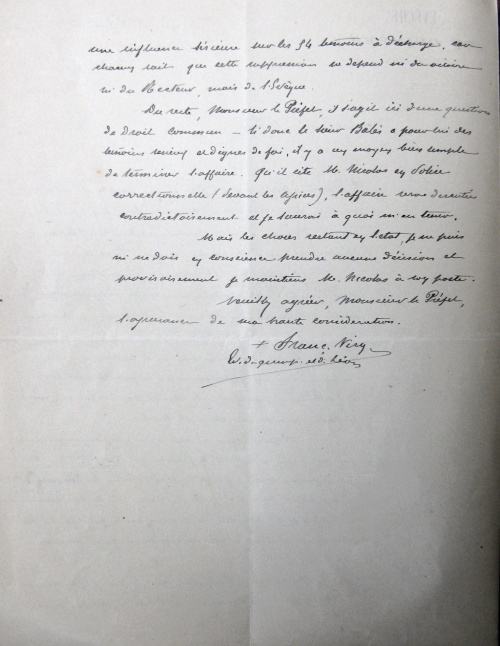 une influence sérieuse sur les 54 témoins à décharge, car
chacun sait que cette suppression ne dépend ni du vicaire
ni du Recteur, mais de l'Evêque.
Du reste, Monsieur le Préfet, il s'agit ici d'une question
de Droit commun – si donc le sieur a pour lui des
témoins sérieux et dignes de foi, il y a un moyen bien simple
de terminer l'affaire. Qu'il cite M. Nicolas en Police
correctionnelle (devant les assises), l'affaire sera discutée
contradictoirement et je saurai à quoi m'en tenir.
Mais les choses restant en l'état, je ne puis
ni ne dois en conscience prendre aucune décision et
provisoirement je maintiens M. Nicolas à son poste.
Veuillez agréer, Monsieur le Préfet,
l'assurance de ma haute considération.
+ Franc.
Ev. de quimp. et de Léon